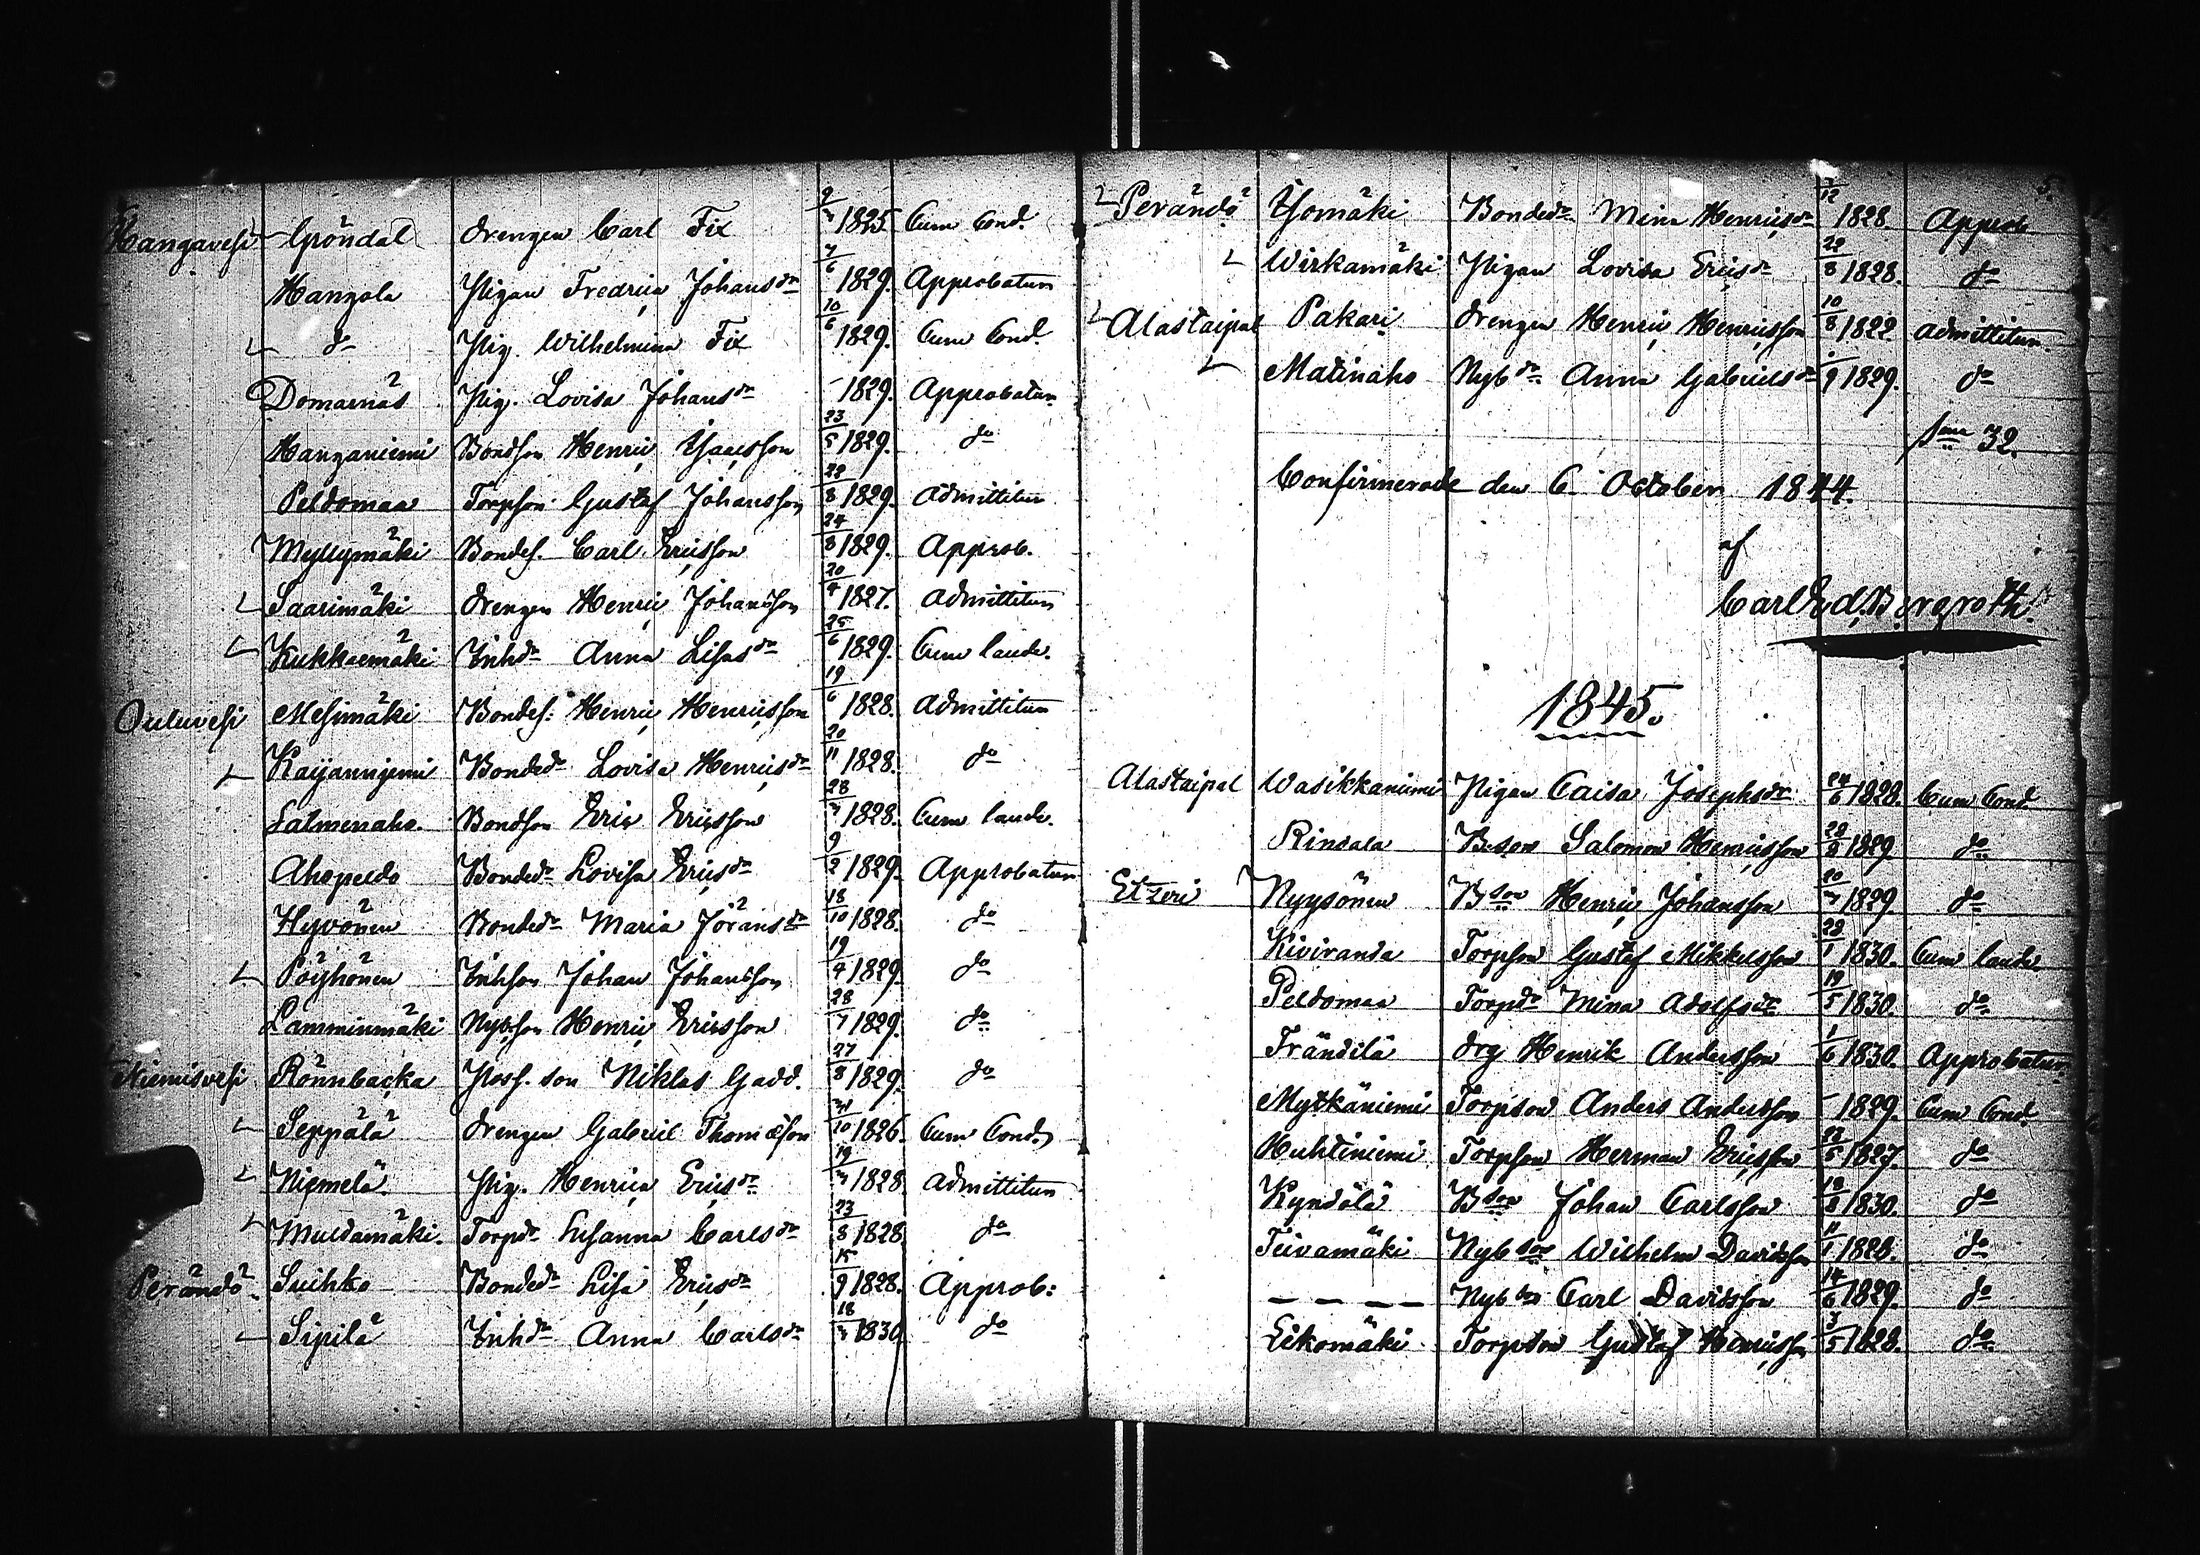 Hangavesi Gröndal drengen Carl Fix 1825 Cum Cond.
Hangola Pigan Fredrica Johansdr 7/6 1829. Approbatur
do Pig. Wilhelmina Fix 10/6 1829. Cum Cond.
Domarnäs Pig. Lovisa Johansdr – 1829. Approbatur
Hanganiemi Bondson Henric Isacsson 23/5 1829. do
Peldomaa Torpson Gustaf Johansson 28/8 1829. Admittitur
Myllymäki Bondes. Carl Ericsson 24/8 1829. Approb.
Saarimäki drengen Henric Johansson 20/4 1827. Admittitur
Kukkaemäki Inhdr Anna Lisasdr 25/6 1829. Cum laude.
Ouluvesi Mesimäki Bondes: Henric Henricsson 19/6 1828. Admittitur
Bondedr Lovisa Henricsdr 20/11 1828. do
Salmenaho. Bondson Eric Ericsson 28/7 1828. Cum laude.
Ahopeldo Bondedr Lovisa Ericsdr 9/2 1829. Approbatur
Hyvönen Bondedr Maria Jöransdr 18/10 1828. do
Pöyhönen Inhson Johan Johansson 19/4 1829. do
Lamminmäki Nybson Henric Ericsson 28/7 1829. do
Niemisvesi Rönnbacka Poss. son Niklas Gadd. 27/8 1829. do
Seppälä drengen Gabriel Thomasson 1826. Cum Cond.
Niemelä. Pig. Henrica Ericsdr 19/7 1828. Admittitur
Muldamäki. Torpdr Susanna Carlsdr 23/8 1828 do
Perändö. Suihko Bondedr Lisa Ericsdr 15/9 1828. Approb:
Sipilä Inhdr Anna Carlsdr 18/3 1830 do
5.
Perändö Isomäki Bondedr Mina Henricsdr 1828. Approb
Wirkamäki Pigan Lovisa Ericsdr 22/8 1828. do
Alastaipal Pakari drengen Henric Henricsson 10/8 1822 Admittitur.
Matinaho Nybdr Anna Gabrielsdr 1829. do
Sma 32.
Confirmerade den 6 October 1844.
af
Carl Ed. Bergroth.
1845.
Alastaipal Wasikkaniemi Pigan Caisa Josephsdr 24/6 1828. Cum Cond.
Rindala B.son Salomon Henricsson 28/8 1829 do
Etzeri Nyysönen Bson Henric Johansson 20/7 1829. do
Kiviranda Torpson Gustaf Mikkelsson 28/1 1830. Cum laude.
Peldomaa Torpdr Mina Adolfsdr 19/5 1830. do
Frändilä drg Henrik Andersson 1/6 1830. Approbatur
Mytkäniemi Torpson Anders Andersson – 1829. Cum Cond.
Huhtiniemi Torpson Herman Ericsson 22/5 1827. do
Kyndölä Bson Johan Carlsson 18/8 1830. do
Teivamäki Nybson Wilhelm Davidsson 11/1 1828. do
– – – – Nybson Carl Davidsson 14/6 1829. do
Torpson Gustaf Henricsson 3/5 1828. do